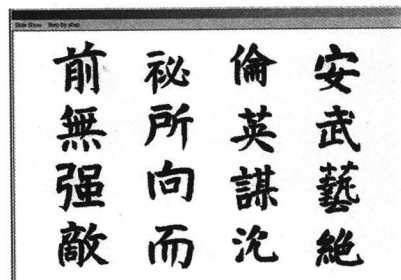 Slide Show Step by step
安武藝絶
倫英謀沈
祕所向而
前無强敵